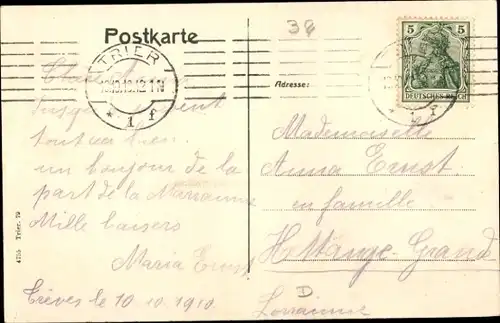 Postkarte
38
TRIER
10.10.12-1N
* 1 f
5 5
DEUTSCHES REICH
Adresse:
tout va bien
un bonjour de la
part de la Marianne
Mille baisers
Maria Ernst
Trèves le 10 10 1910
Mademoiselle
Anna Ernst
en famille
Hettange-Grand
D
Lorraine
4755 Trier. 79